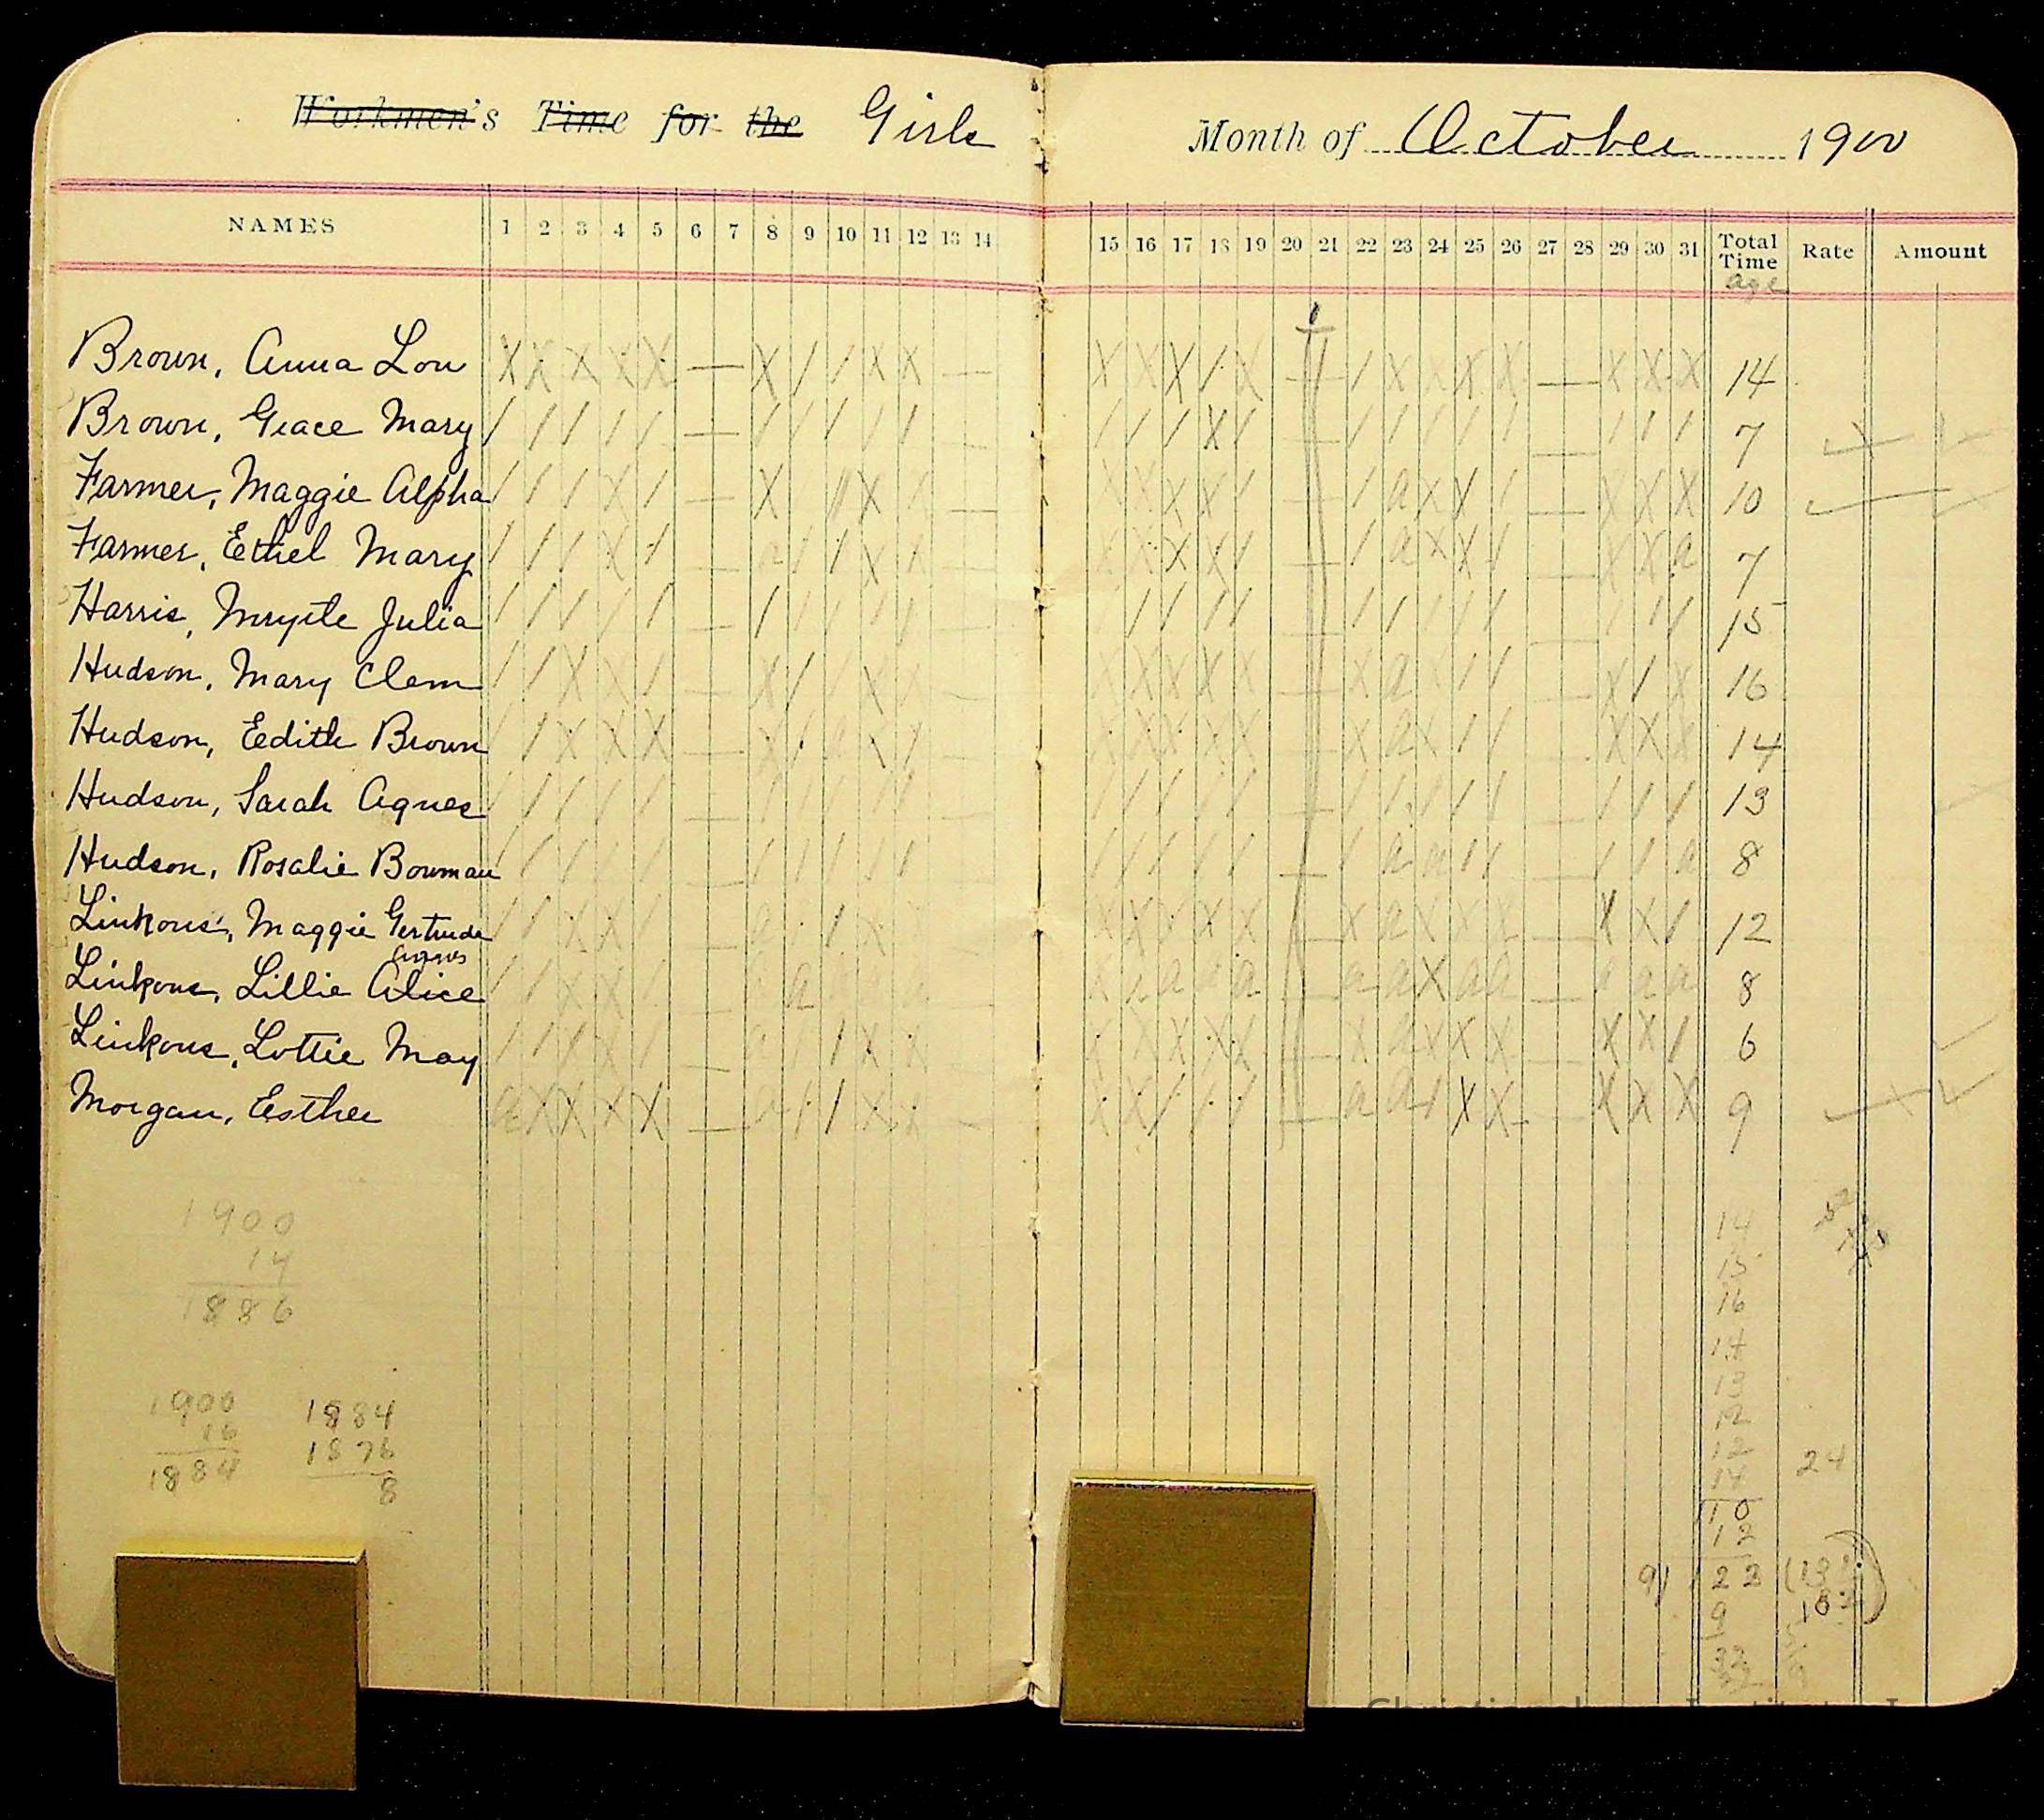 Workmen's Time for the Girls
Month of October 1900
NAMES 1 2 3 4 5 6 7 8 9 10 11 12 13 14
15 16 17 18 19 20 21 22 23 24 25 26 27 28 29 30 31 Total Time Rate Amount
age
Brown, Anna Lou X X X X X — X / / X X — X X X / X — / X X X X — X X X 14
Brown, Grace Mary / / / / / — / / / / / — / / / X / — / / / / / — / / / 7
Farmer, Maggie Alpha / / / X / — X X — X X / — / a X X / — X X X 10
Farmer, Ethel Mary / / / X / — a / / X X — X X X X / — / a X X / — X X a 7
Harris, Myrtle Julia / / / / / — / / / / / — / / / / — / / / / / — / / / 15
Hudson, Mary Clem / / X X / — X / X X — X X X X X — X a X / / — X / X 16
Hudson, Eedith Brown / / X X X — X / — X X X X X — X a X / / — X X X 14
Hudson, Sarah Agnes / / / / / — / / / / / — / / / / / — / / / / / — / / / 13
Hudson, Rosalie Bowman / / / / / — / / / / / / / / / / — / a a / / — / / a 8
Linkous, Maggie Gertrude / / X X / — a / X — X X X X X — X a X X X — X X / 12
Agnes
Linkous, Lillie Alice / / X X / — a — a a a — a a X a a — a a a 8
Linkous, Lottie May / / / X / — a / X X X X X X X — X a X X X — X X / 6
Morgan, Esther a X X X X — a / / X X — X X / / / — a a / X X — X X X 9
1900
14
1886
1900
16
1884
1884
1876
8
14
15
16
14
13
12
12
14
24
110
12
9) 122
9
32